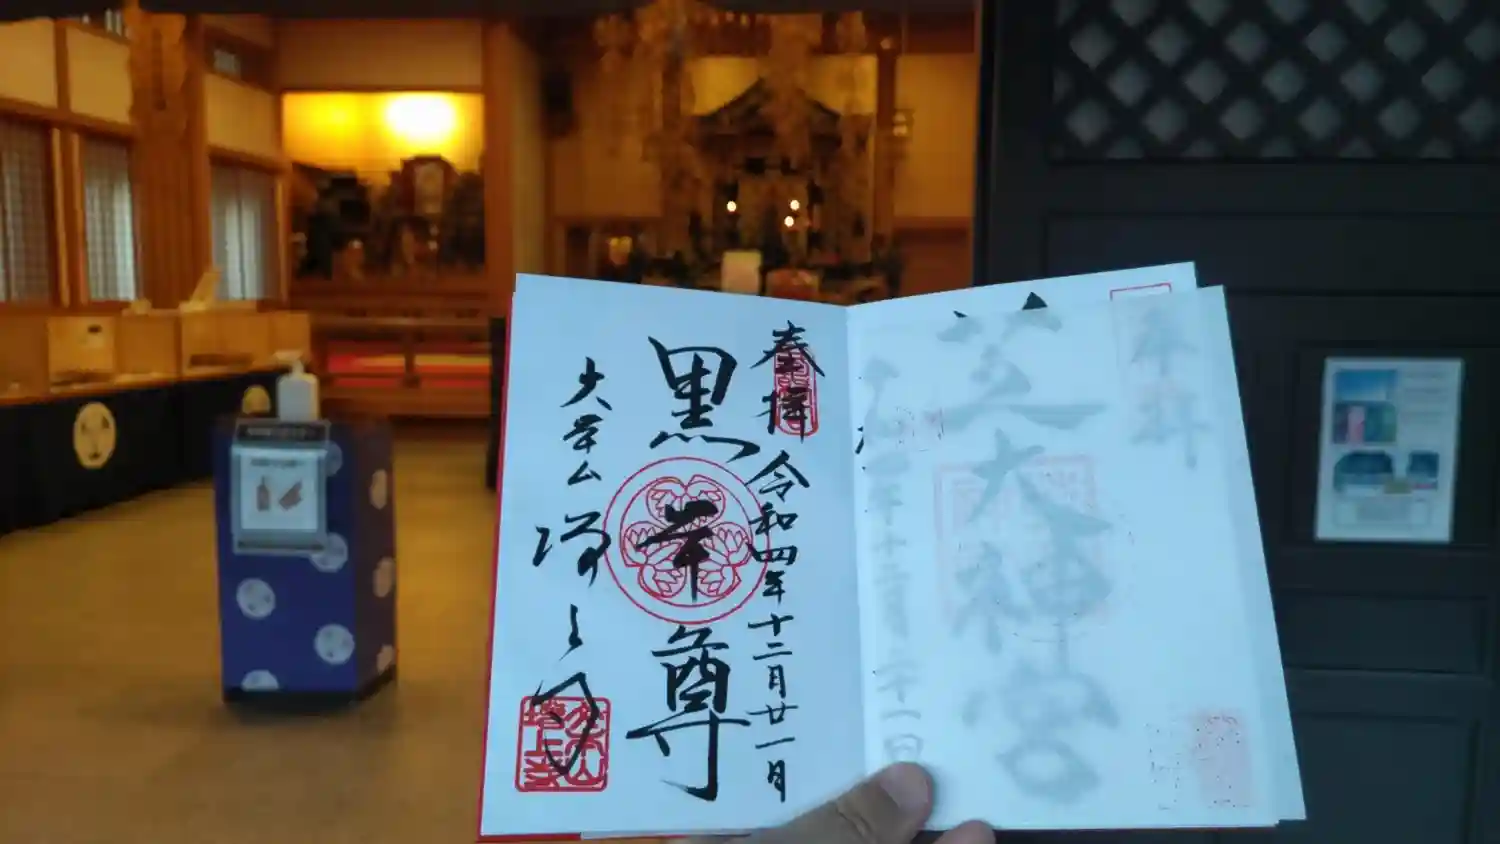 奉拝
芝大神宮
四年十二月二十一日
奉拝 令和四年十二月廿一日
黒本尊
大本山 増上寺
増上寺